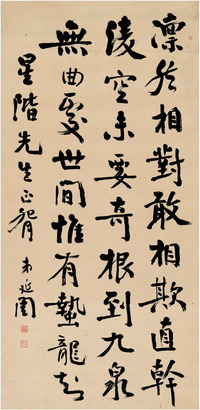 凜然相對敢相欺直幹
凌空未要奇根到九泉
無曲處世間惟有蟄龍知
星階先生正腕
弟延闓